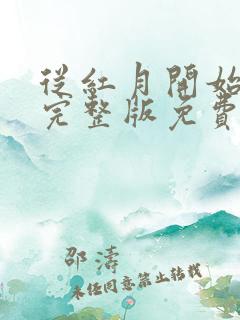 從紅月開始
完整版免費
邵濤
未经同意禁止转载